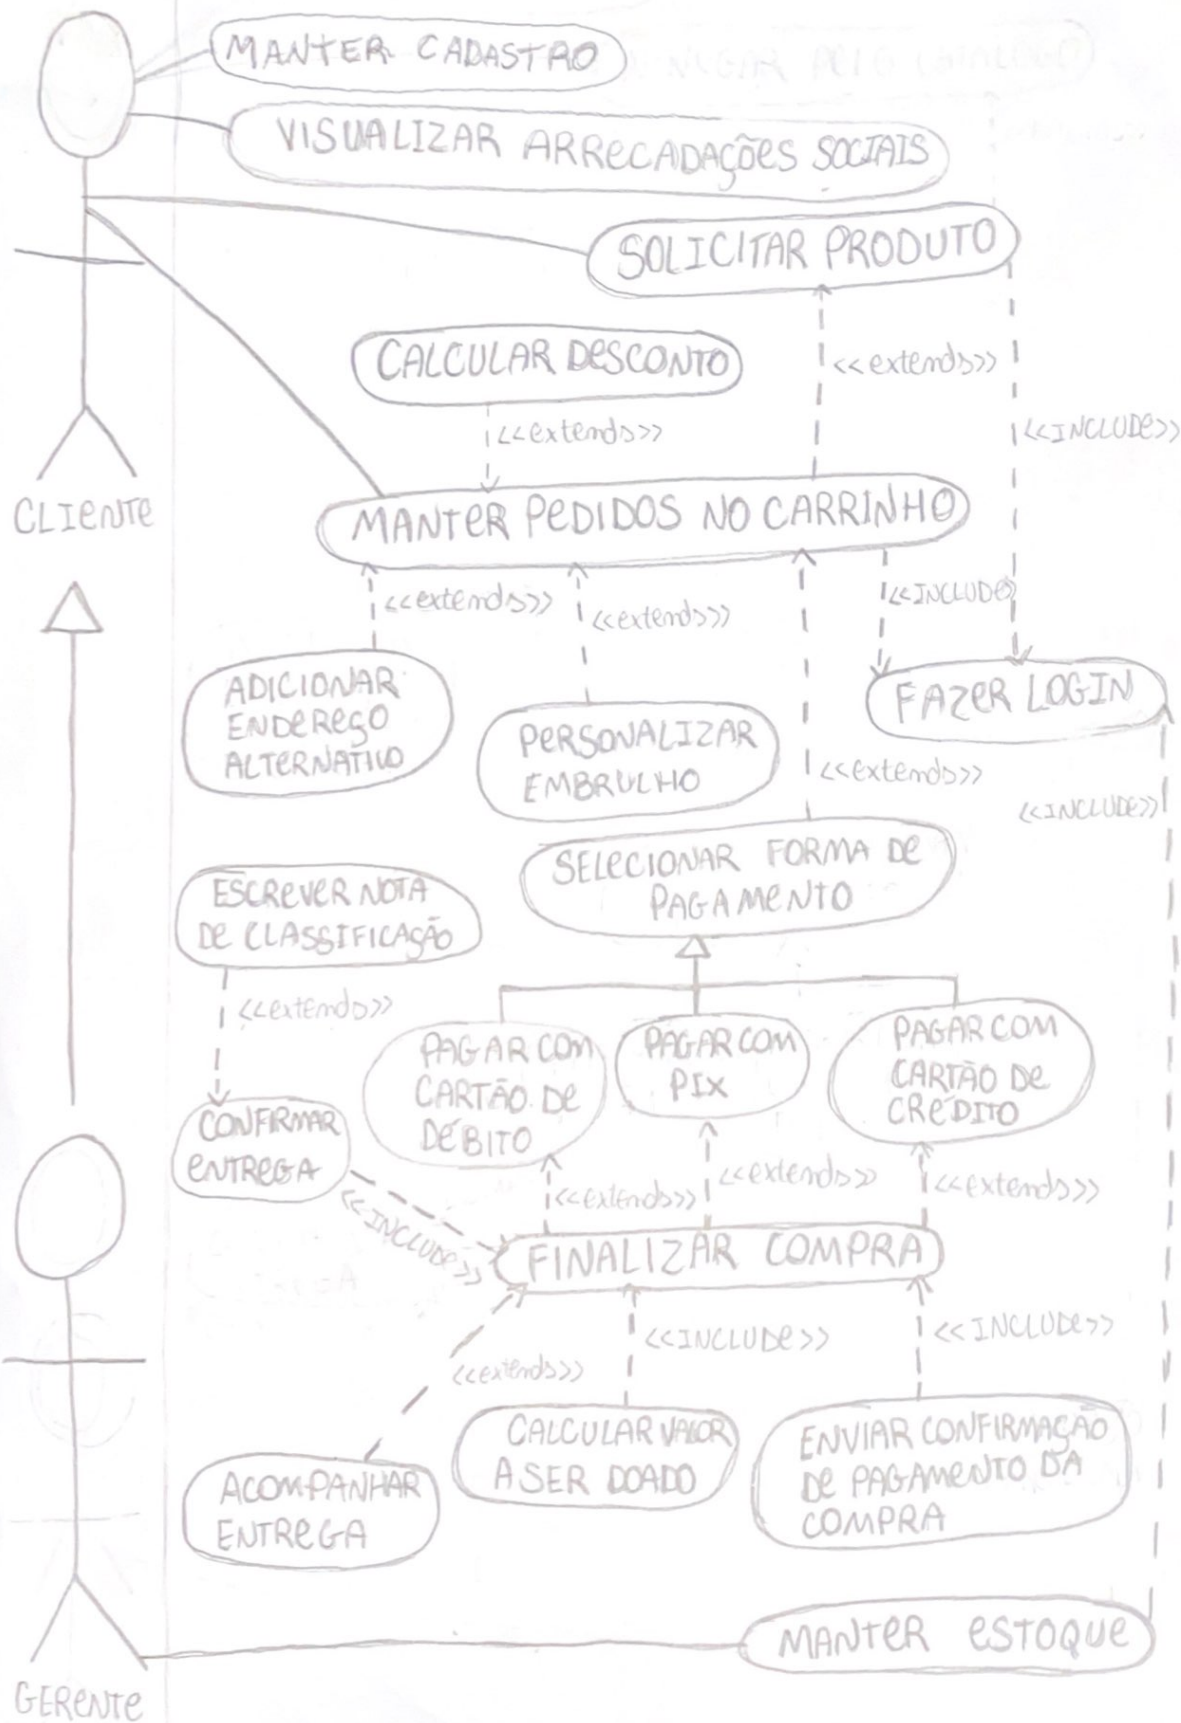 MANTER CADASTRO
VISUALIZAR ARRECADAÇÕES SOCIAIS
SOLICITAR PRODUTO
CALCULAR DESCONTO
<<extends>>
<<extends>>
<<INCLUDE>>
CLIENTE
MANTER PEDIDOS NO CARRINHO
<<extends>>
<<extends>>
<<INCLUDE>
ADICIONAR
ENDEREÇO
ALTERNATIVO
PERSONALIZAR
EMBRULHO
FAZER LOGIN
<<extends>>
<<INCLUDE>>
SELECIONAR FORMA DE
PAGAMENTO
ESCREVER NOTA
DE CLASSIFICAÇÃO
<<extends>>
PAGAR COM
CARTÃO DE
DÉBITO
PAGAR COM
PIX
PAGAR COM
CARTÃO DE
CRÉDITO
CONFIRMAR
ENTREGA
<<extends>>
<<extends>>
<<extends>>
<<INCLUDE>>
FINALIZAR COMPRA
<<extends>>
<<INCLUDE>>
<<INCLUDE>>
ACOMPANHAR
ENTREGA
CALCULAR VALOR
A SER DOADO
ENVIAR CONFIRMAÇÃO
DE PAGAMENTO DA
COMPRA
MANTER ESTOQUE
GERENTE